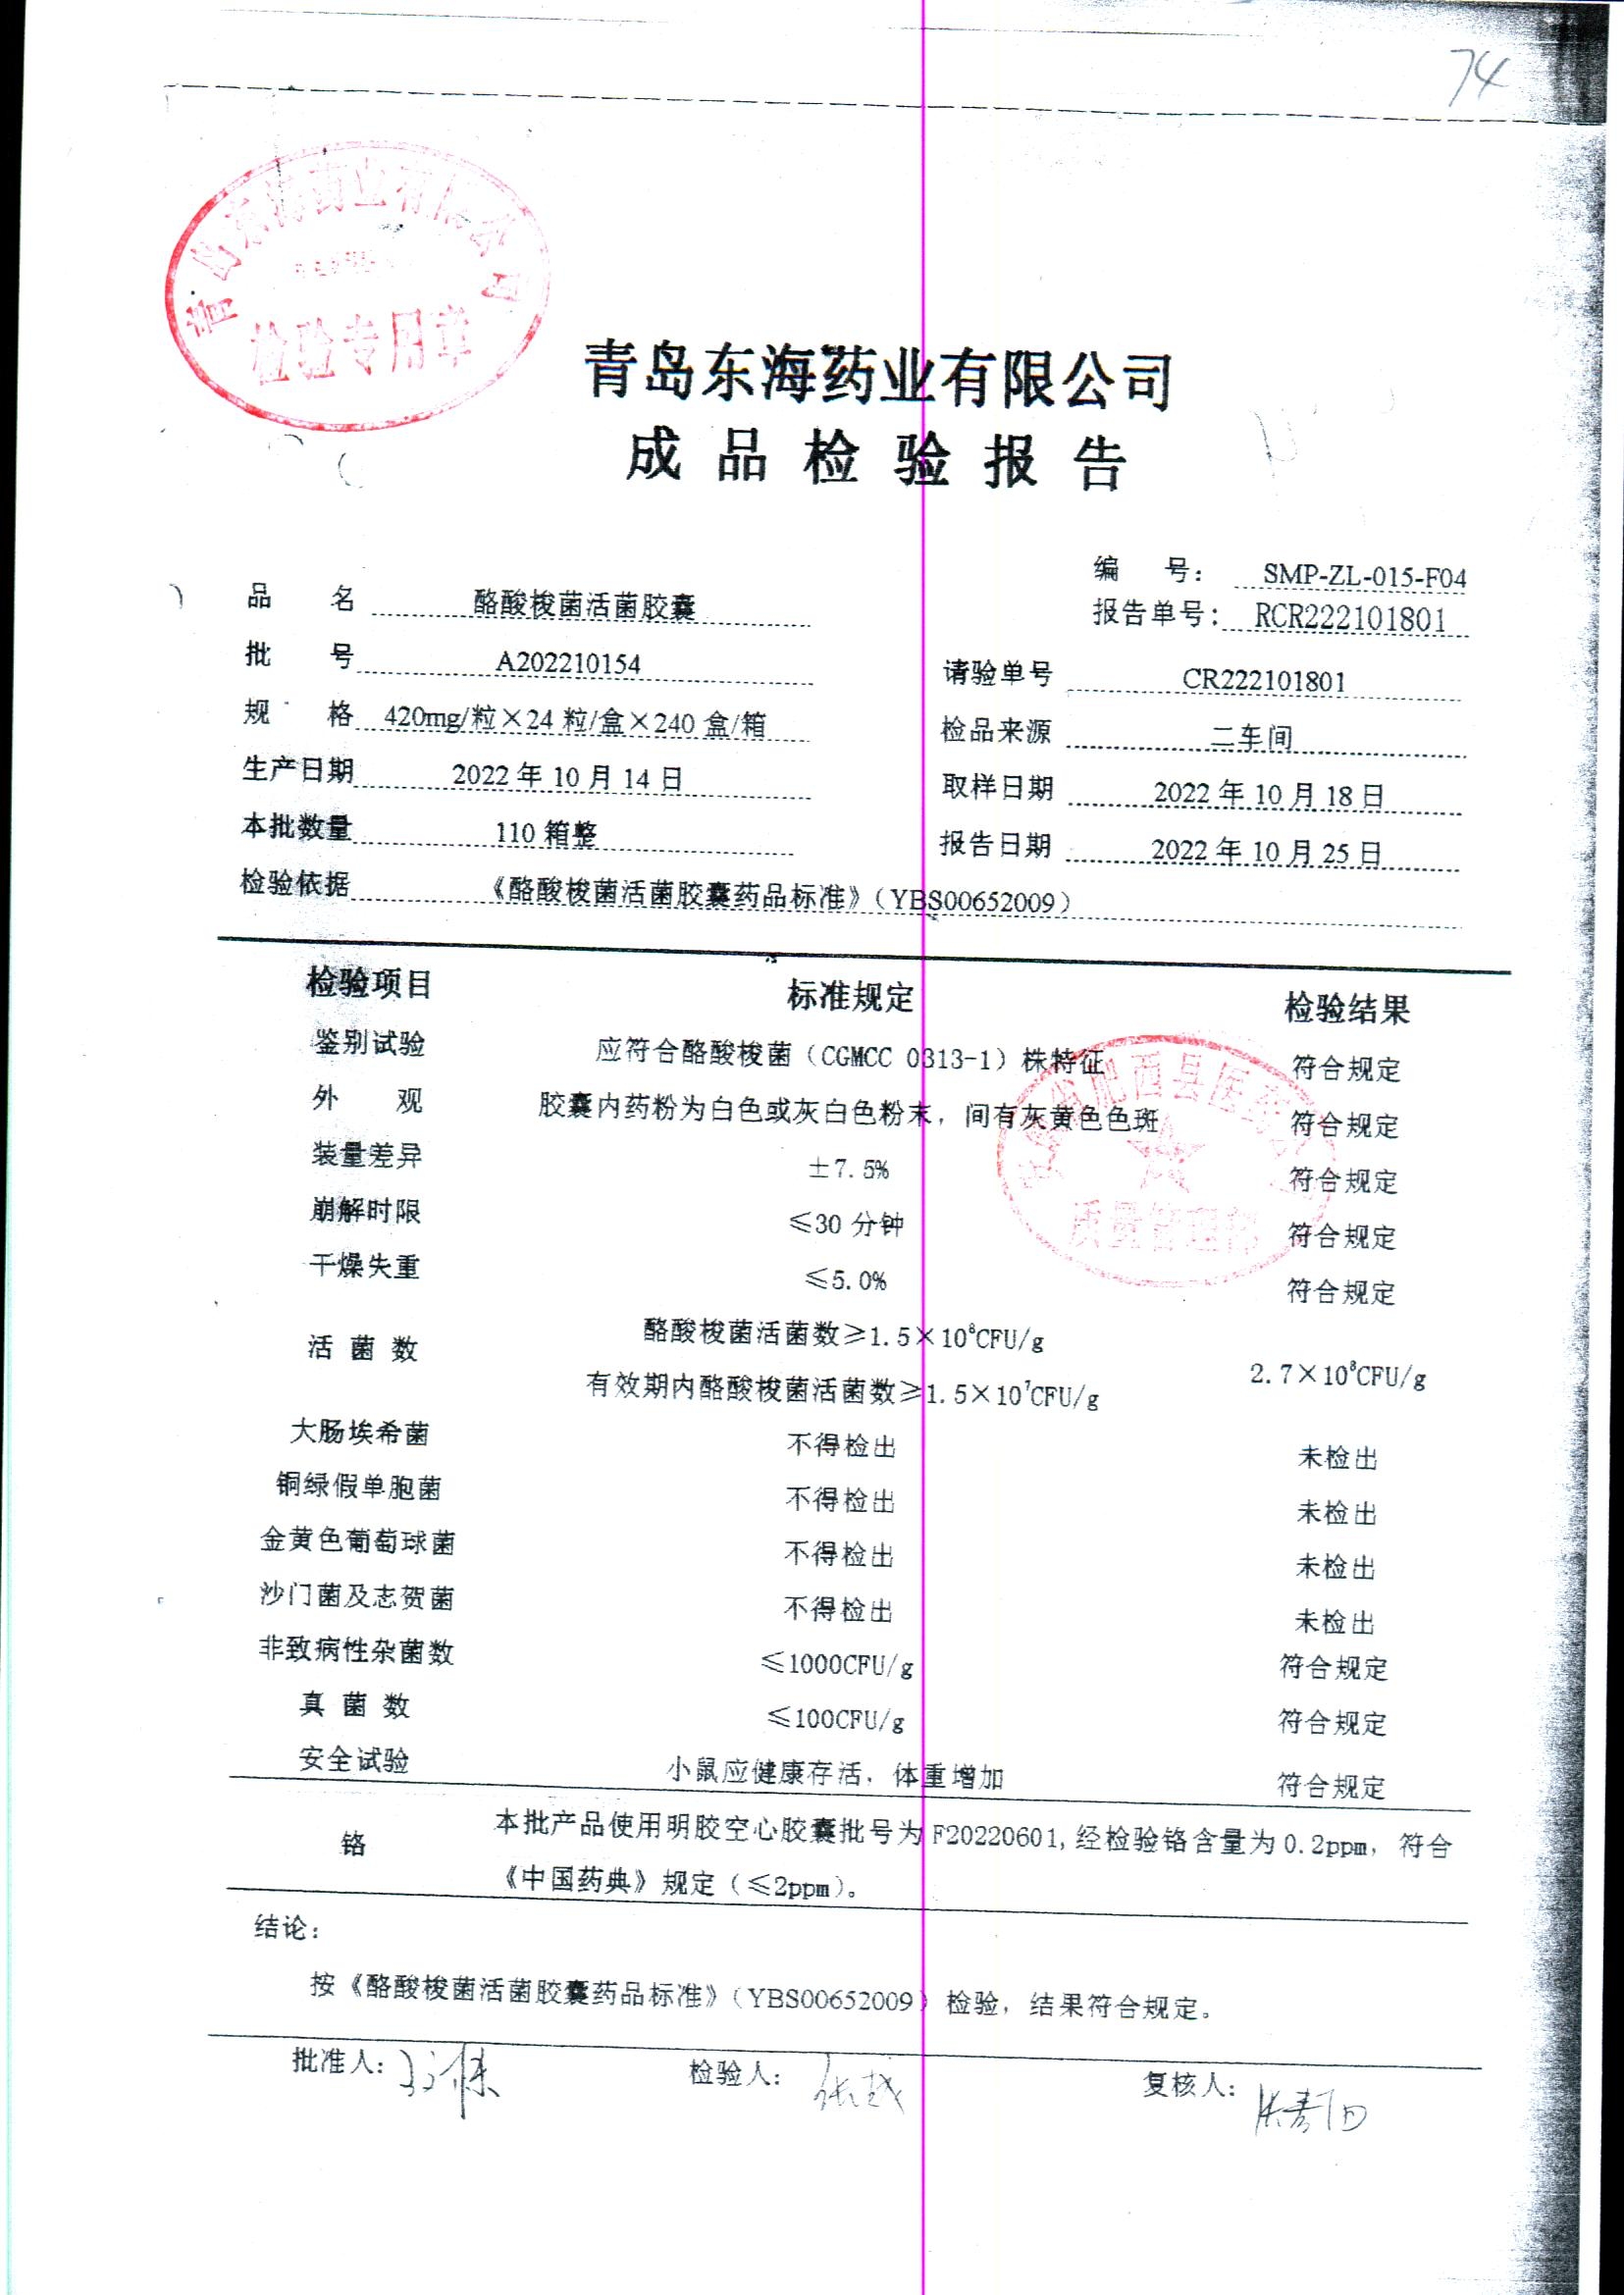 74
青岛东海药业有限公司
检验专用章
青岛东海药业有限公司
成品检验报告
编 号: SMP-ZL-015-F04
品 名 酪酸梭菌活菌胶囊
报告单号: RCR222101801
批 号 A202210154
请验单号 CR222101801
规 格 420mg/粒×24粒/盒×240盒/箱
检品来源 二车间
生产日期 2022年10月14日
取样日期 2022年10月18日
本批数量 110箱整
报告日期 2022年10月25日
检验依据 《酪酸梭菌活菌胶囊药品标准》(YBS00652009)
检验项目 标准规定 检验结果
鉴别试验 应符合酪酸梭菌(CGMCC 0313-1)株特征 符合规定
外 观 胶囊内药粉为白色或灰白色粉末,间有灰黄色色斑 符合规定
装量差异 ±7.5% 符合规定
崩解时限 ≤30分钟 符合规定
干燥失重 ≤5.0% 符合规定
肥西县医药
质量管理部
活菌数 酪酸梭菌活菌数≥1.5×10⁸CFU/g
有效期内酪酸梭菌活菌数≥1.5×10⁷CFU/g 2.7×10⁸CFU/g
大肠埃希菌 不得检出 未检出
铜绿假单胞菌 不得检出 未检出
金黄色葡萄球菌 不得检出 未检出
沙门菌及志贺菌 不得检出 未检出
非致病性杂菌数 ≤1000CFU/g 符合规定
真菌数 ≤100CFU/g 符合规定
安全试验 小鼠应健康存活,体重增加 符合规定
铬 本批产品使用明胶空心胶囊批号为F20220601,经检验铬含量为0.2ppm,符合
《中国药典》规定(≤2ppm)。
结论:
按《酪酸梭菌活菌胶囊药品标准》(YBS00652009)检验,结果符合规定。
批准人: 检验人: 张越 复核人: